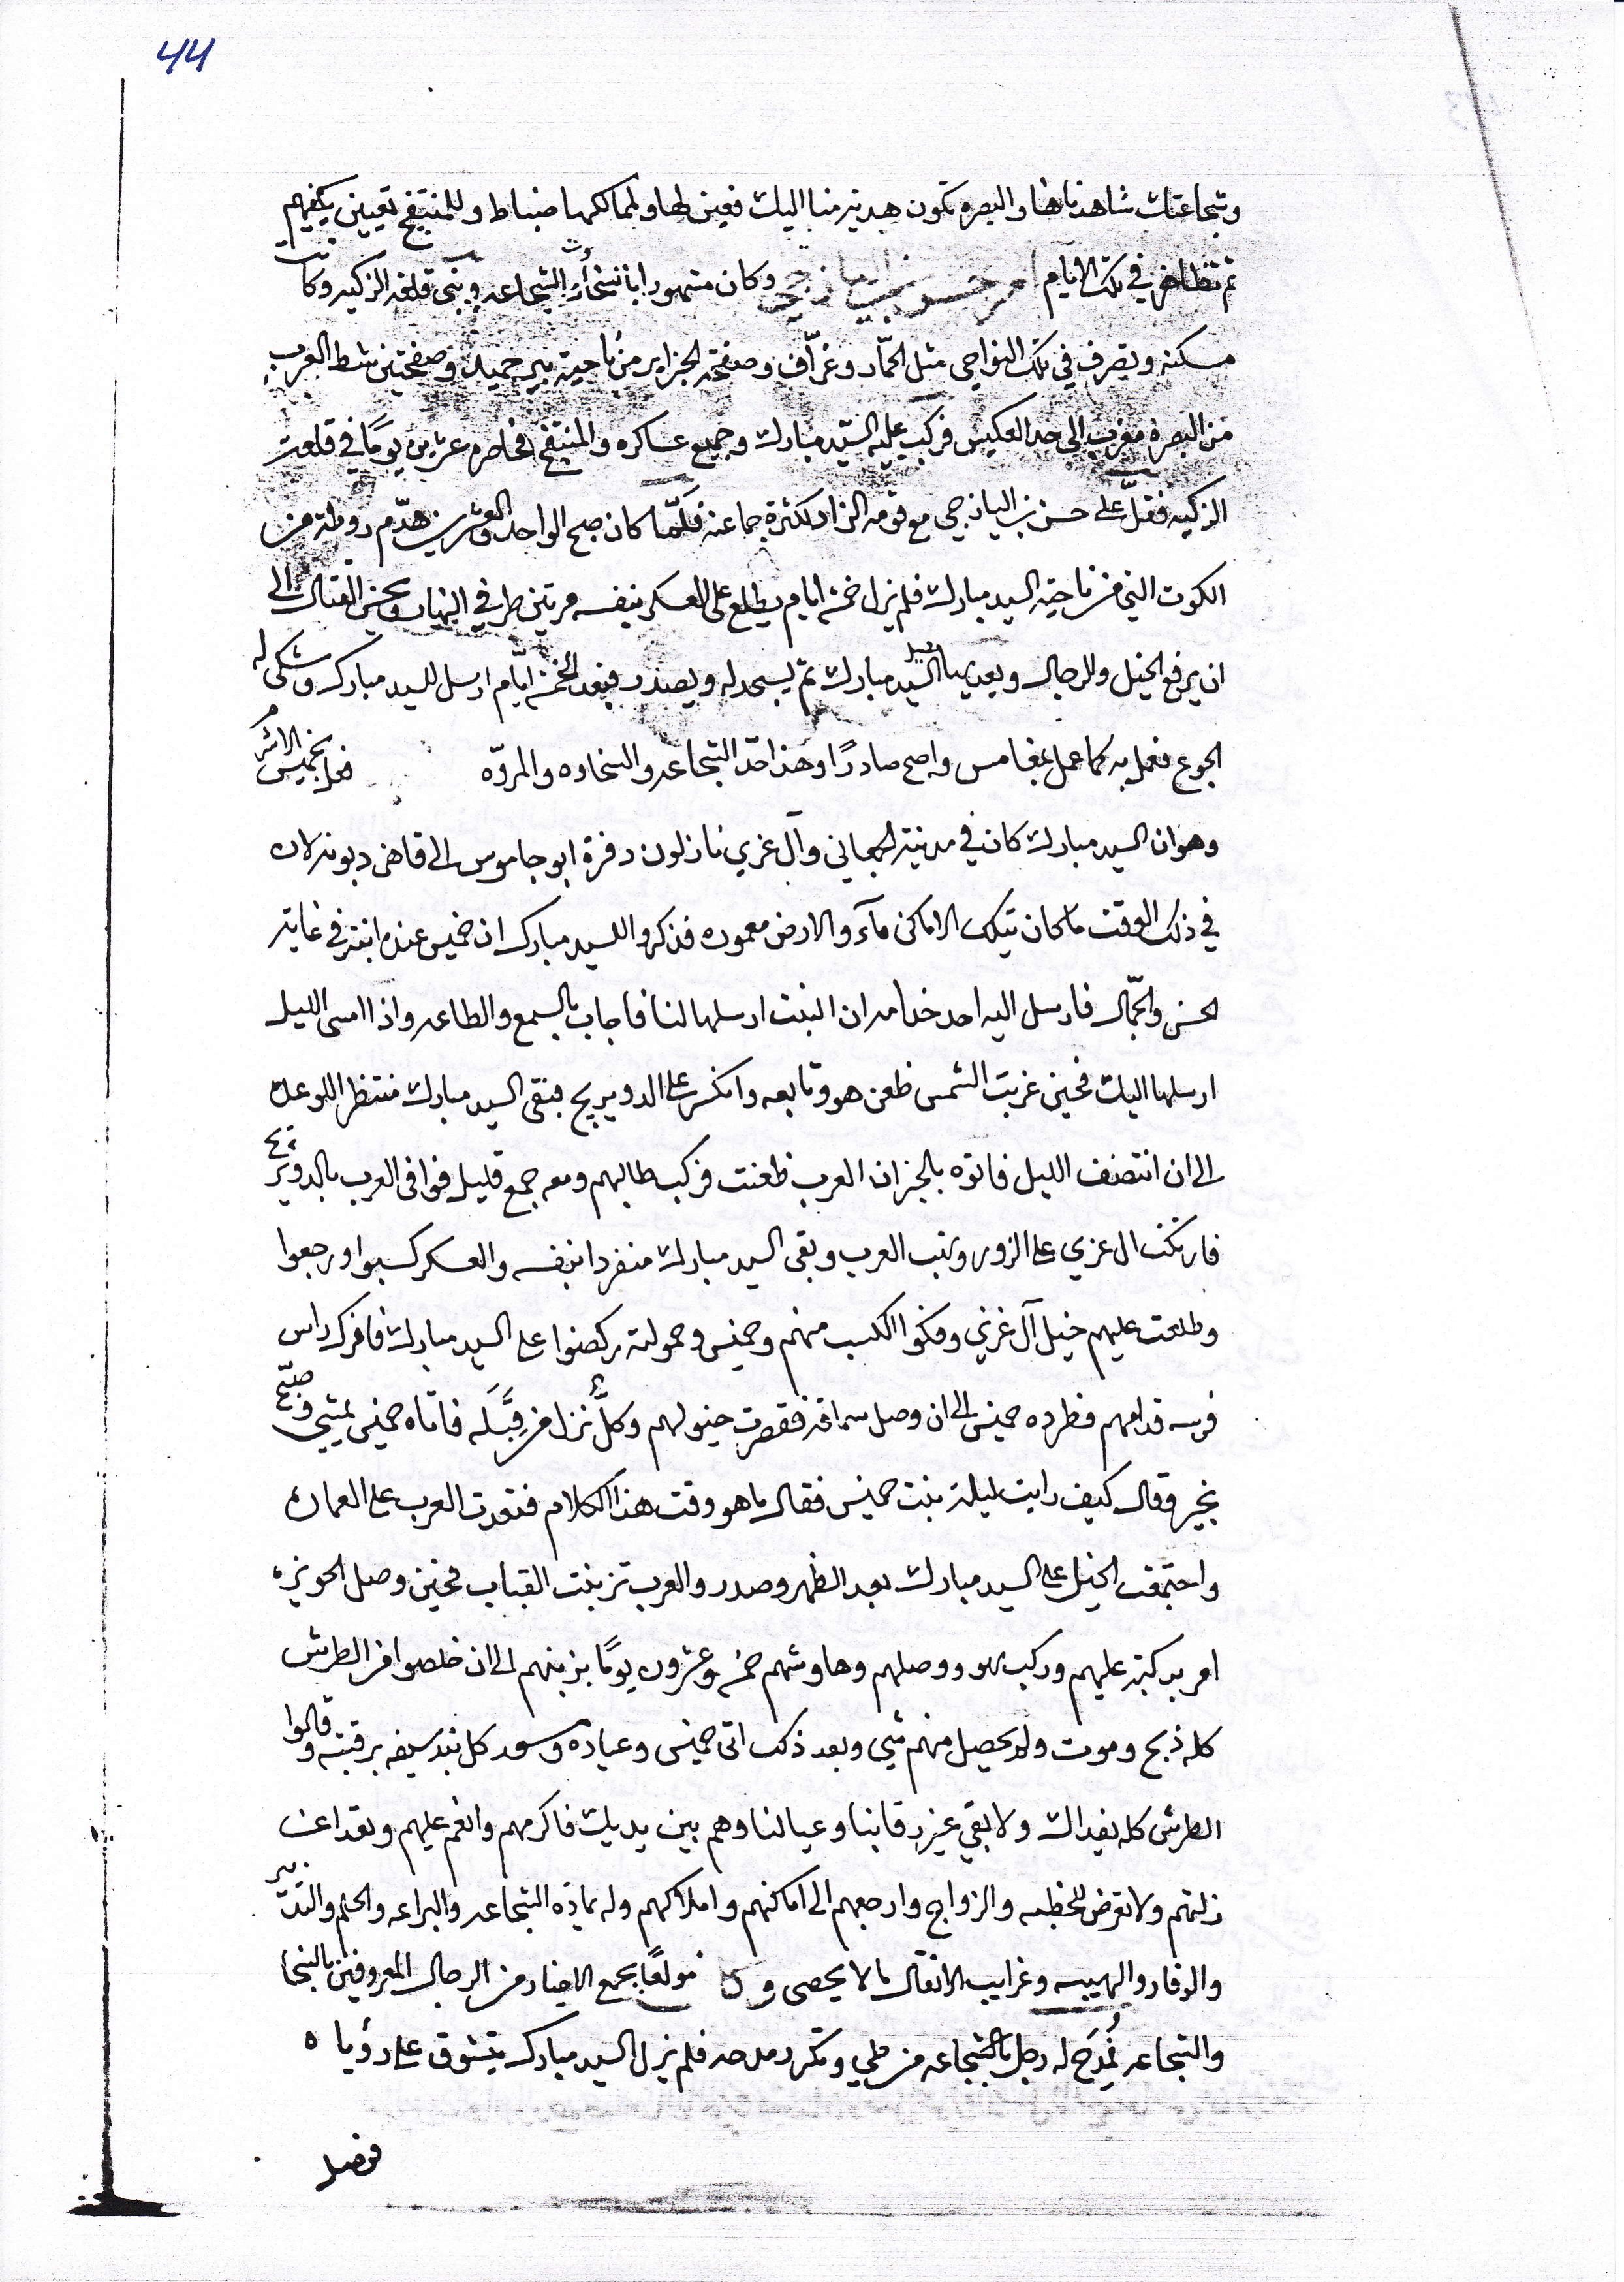 ٤٤
وشجاعتك شاهدناها والبصره تكون هدية منا اليك فعين لها ولمماكمها ضباط وللمنتفج تعيين يكفيهم
ثم تظاهر في تلك الايام امر حسن بن اليازجي وكان مشهورا بانشاءات الشجاعه وبنى قلعة الزكيه وكانت
مسكنه وتصرف في تلك النواحي مثل الحمّار وغرّاف وصفحة الجزاير من ناحية بير حميد وصفحتين شط العرب
من البصرة مغرب الى حد العكيس فركب عليه السيّد مبارك وجميع عساكره والمنتفج فحاصره عشرين يومًا في قلعت
الزكيه فقلّ على حسن بن اليازجي مع قومه الزاد لكثرة جماعته فلمّا كان صبح الواحد والعشرين هدّم روطة من
الكوت التي من ناحية السيد مبارك فلم يزل خمسة ايام يطلع على العسكر بنفسه مرتين طرفي النهار ويحسن القتال الى
ان يرفع الخيل والرجال ويعد السيد مبارك ثم يسجد له ويصدر فبعد الخمسة ايّام ارسل للسيد مبارك وشكى له
الجوع فعمل به كما عمل بمغامس واصبح صادرًا وهذا حدّ الشجاعه والسخاوه والمروّه فعل بخميس الاشر
وهو ان السيد مبارك كان في مدينة الجحاني وآل غزي نازلون دفرة ابو جاموس الى قاضي دبونه لان
في ذلك الوقت ما كان بتلك الاماكن مآء والارض معموره فذكروا للسيد مبارك ان خميس عنده ابنة في غاية
الحسن والجمّال فارسل اليه احد خدامه ان البنت ارسلها لنا فاجاب بالسمع والطاعه واذا امسى الليل
ارسلها اليك فحين غربت الشمس ظعن هو وتابعه وانكسر على الدويريج فبقى السيد مبارك منتظر للوعد
الى ان انتصف الليل فاتوه بالخبر ان العرب ظعنت فركب طالبهم ومعه جمع قليل فوافى العرب بالدويريج
فاركت ال غزي على الزور ونهب العرب وبقى السيد مبارك منفردا بنفسه والعسكر كسبوا ورجعوا
وطلعت عليهم خيل آل غزي وفكوا الكسب منهم وخميس وحمولته ركضوا على السيد مبارك فافرك راس
فرسه قدامهم فطرده خميس الى ان وصل سماقه فقصرت خيولهم وكلٌّ نزل من قِبَله فاتاه خميس يمشي وصبّح
بخير وقال كيف رايت ليلة بنت خميس فقال ما هو وقت هذا الكلام فتعدت العرب على العماره
واجتمعت الخيل على السيد مبارك بعد الظهر وصدر والعرب تزبنت القباب فحين وصل الحويزه
امر بركبة عليهم وركب بهور ووصلهم وهاوشهم خمسه وعشرون يومًا بزبنهم الى ان خلصوا من الطرش
كله ذبح وموت ولم يحصل منهم شي وبعد ذلك اتى خميس وعباده وسعد كل بند سيفه برقبته وقالوا
الطرش كله يفداك ولا بقي غير رقابنا وعيالنا وهم بين يديك فاكرمهم وانعم عليهم وتعدا عن
زلتهم ولا تعرض للخطبه والزواج وارجعهم الى اماكنهم واملاكهم وله بهاذه الشجاعه والبراعه والحلم والتدبير
والوقار والهيبه وغرايب الافعال ما لا يحصى و مولعًا بجمع الاخيار من الرجال المعروفين بالنخا
والشجاعه مُدِحَ له رجل بالشجاعه من طي وتكرر مدحه فلم يزل السيد مبارك يتشوق على رؤياه
فوصل